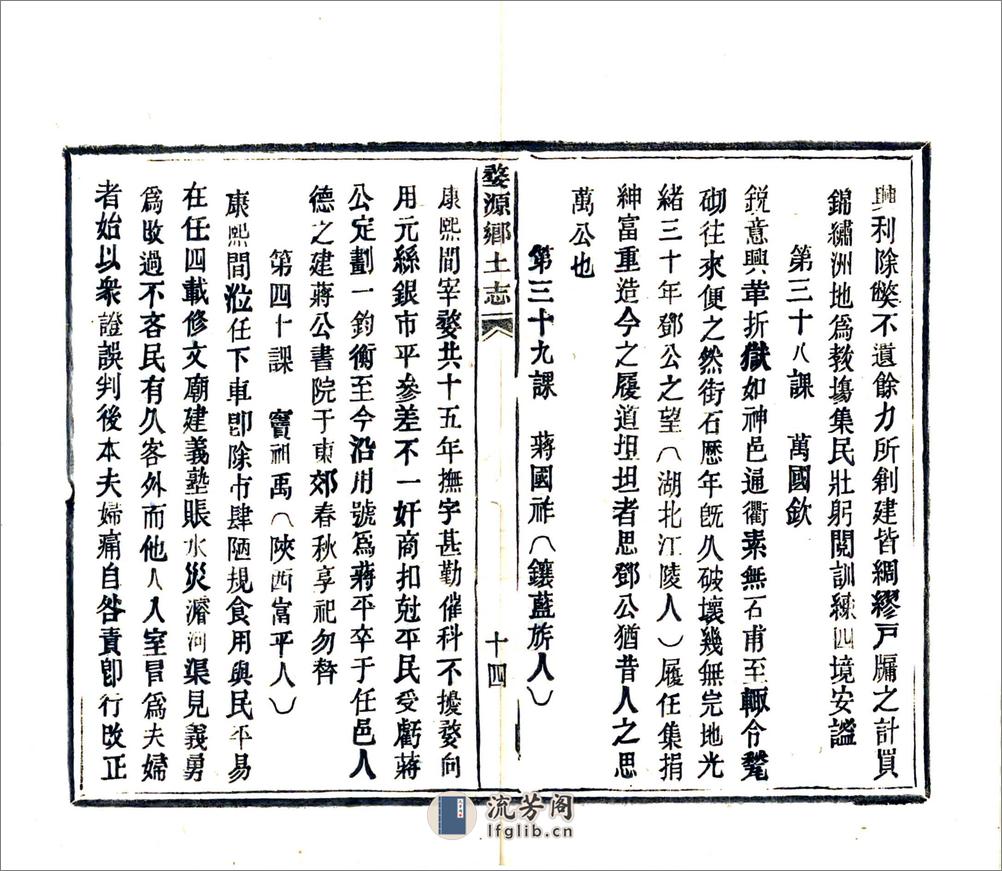 興利除獘不遺餘力所創建皆綢繆戸牖之計買
錦繡洲地爲敎塲集民壯躬閱訓練四境安謐
第三十八課 萬國欽
銳意興革折獄如神邑逼衢素無石甫至輙令甃
砌往來便之然街石歷年旣久破壞幾無完地光
緒三十年鄧公之望（湖北江陵人）履任集捐
紳富重造今之履道坦坦者思鄧公猶昔人之思
萬公也
第三十九課 蔣國祚（鑲藍旂人）
婺源鄉土志
十四
康熙間宰婺共十五年撫字甚勤催科不擾婺向
用元絲銀市平參差不一奸商扣尅平民受虧蔣
公定劃一鈞衡至今沿用號爲蔣平卒于任邑人
德之建蔣公書院于東郊春秋享祀勿替
第四十課 竇祖禹（陝西富平人）
康熙間涖任下車卽除市肆陋規食用與民平易
在任四載修文廟建義塾賬水災濬河渠見義勇
爲改過不吝民有久客外而他人入室冒爲夫婦
者始以衆證誤判後本夫婦痛自咎責卽行改正
流芳阁
lfglib.cn